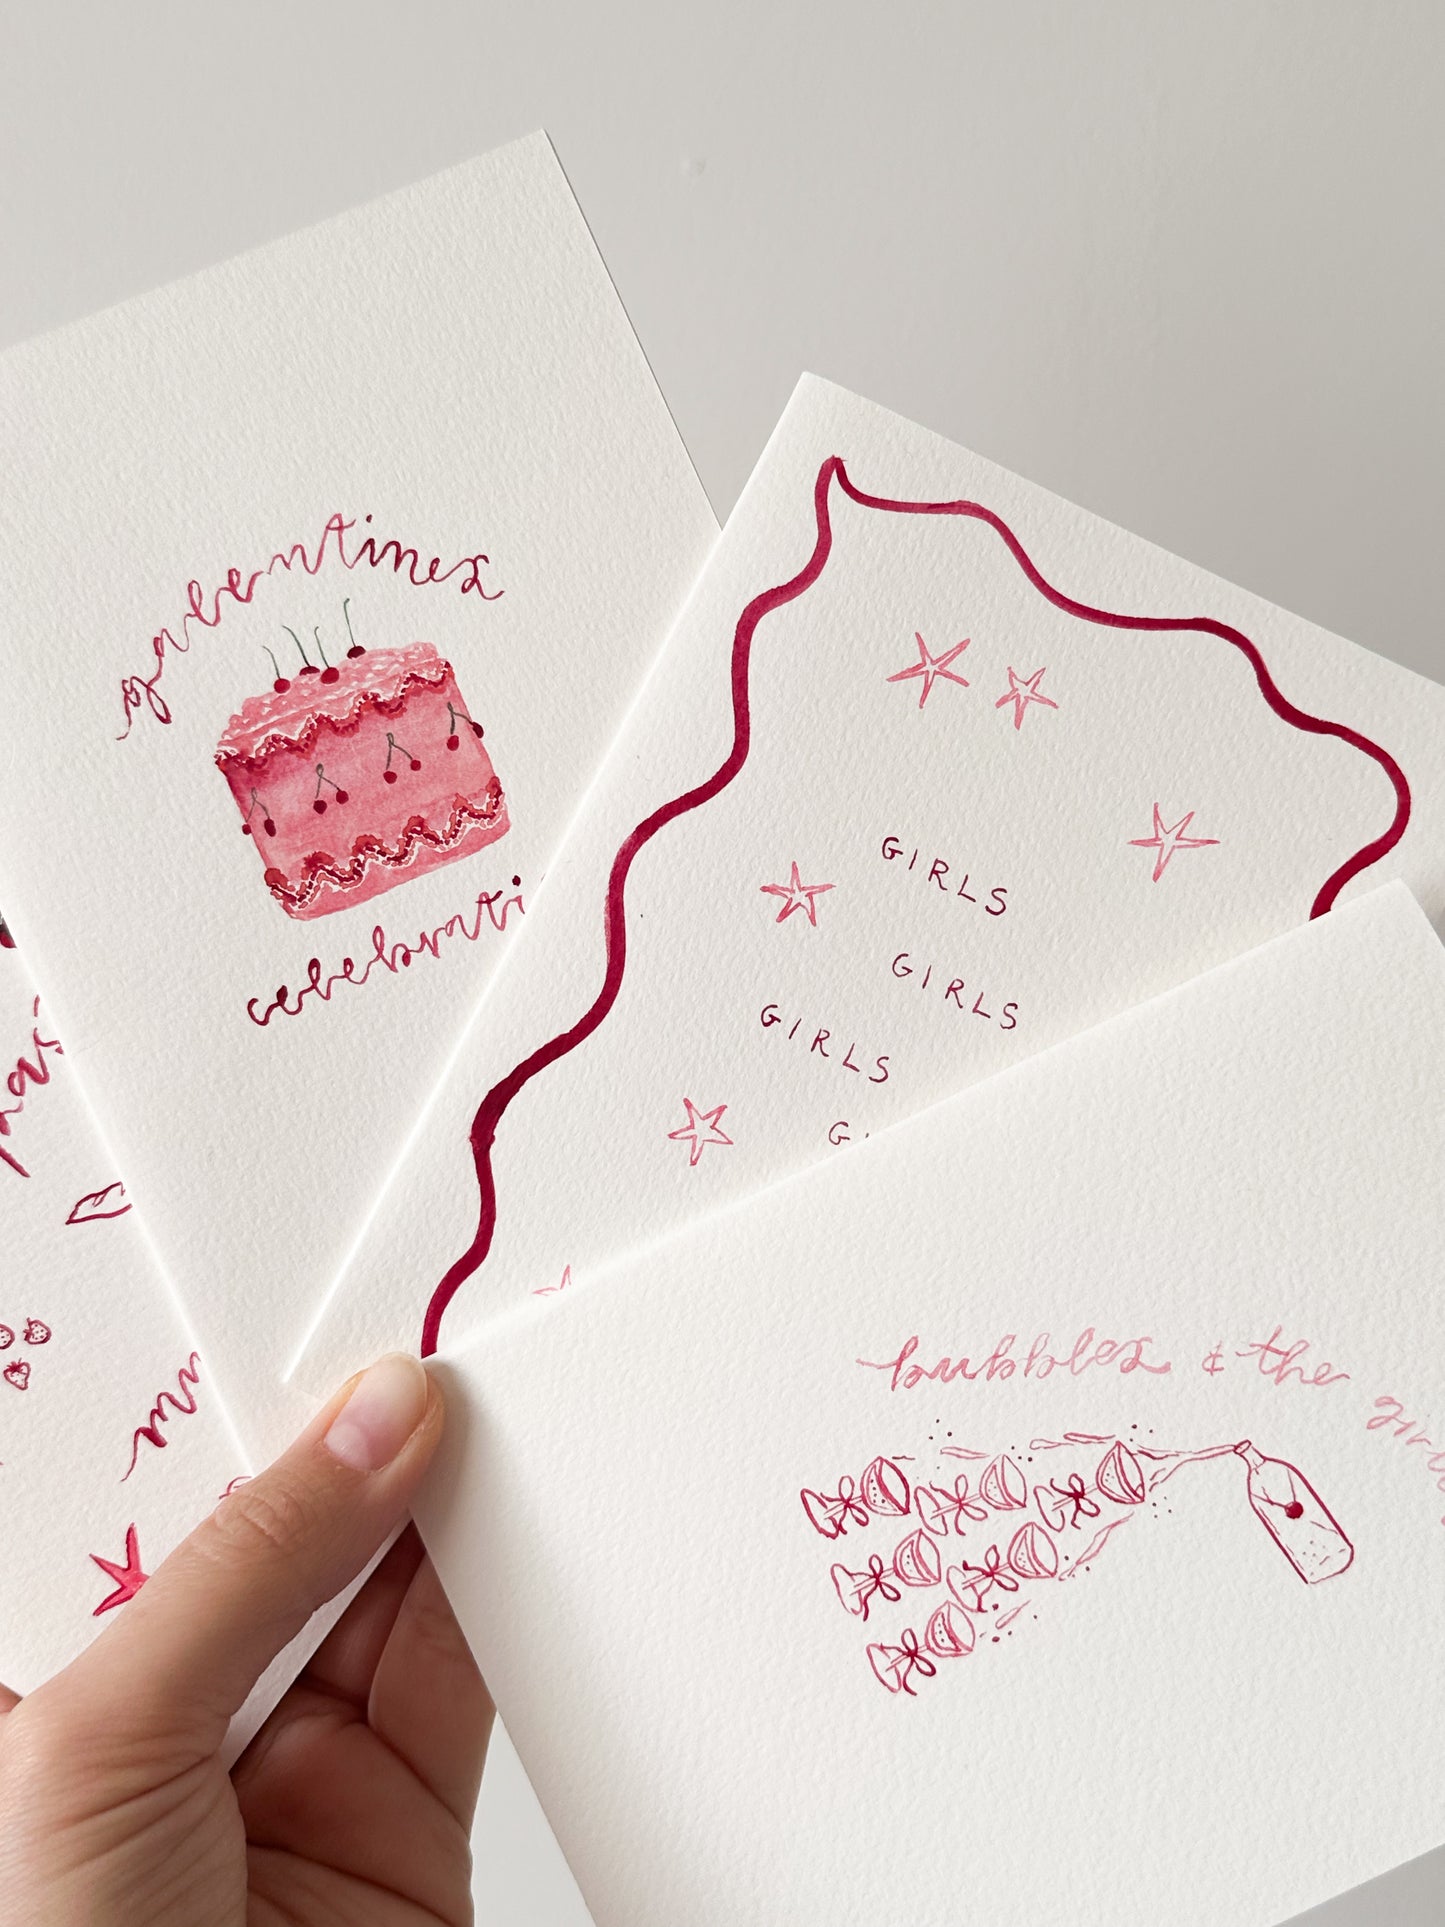 galentines
celebrati
GIRLS
GIRLS
GIRLS
G
bubbles & the girl